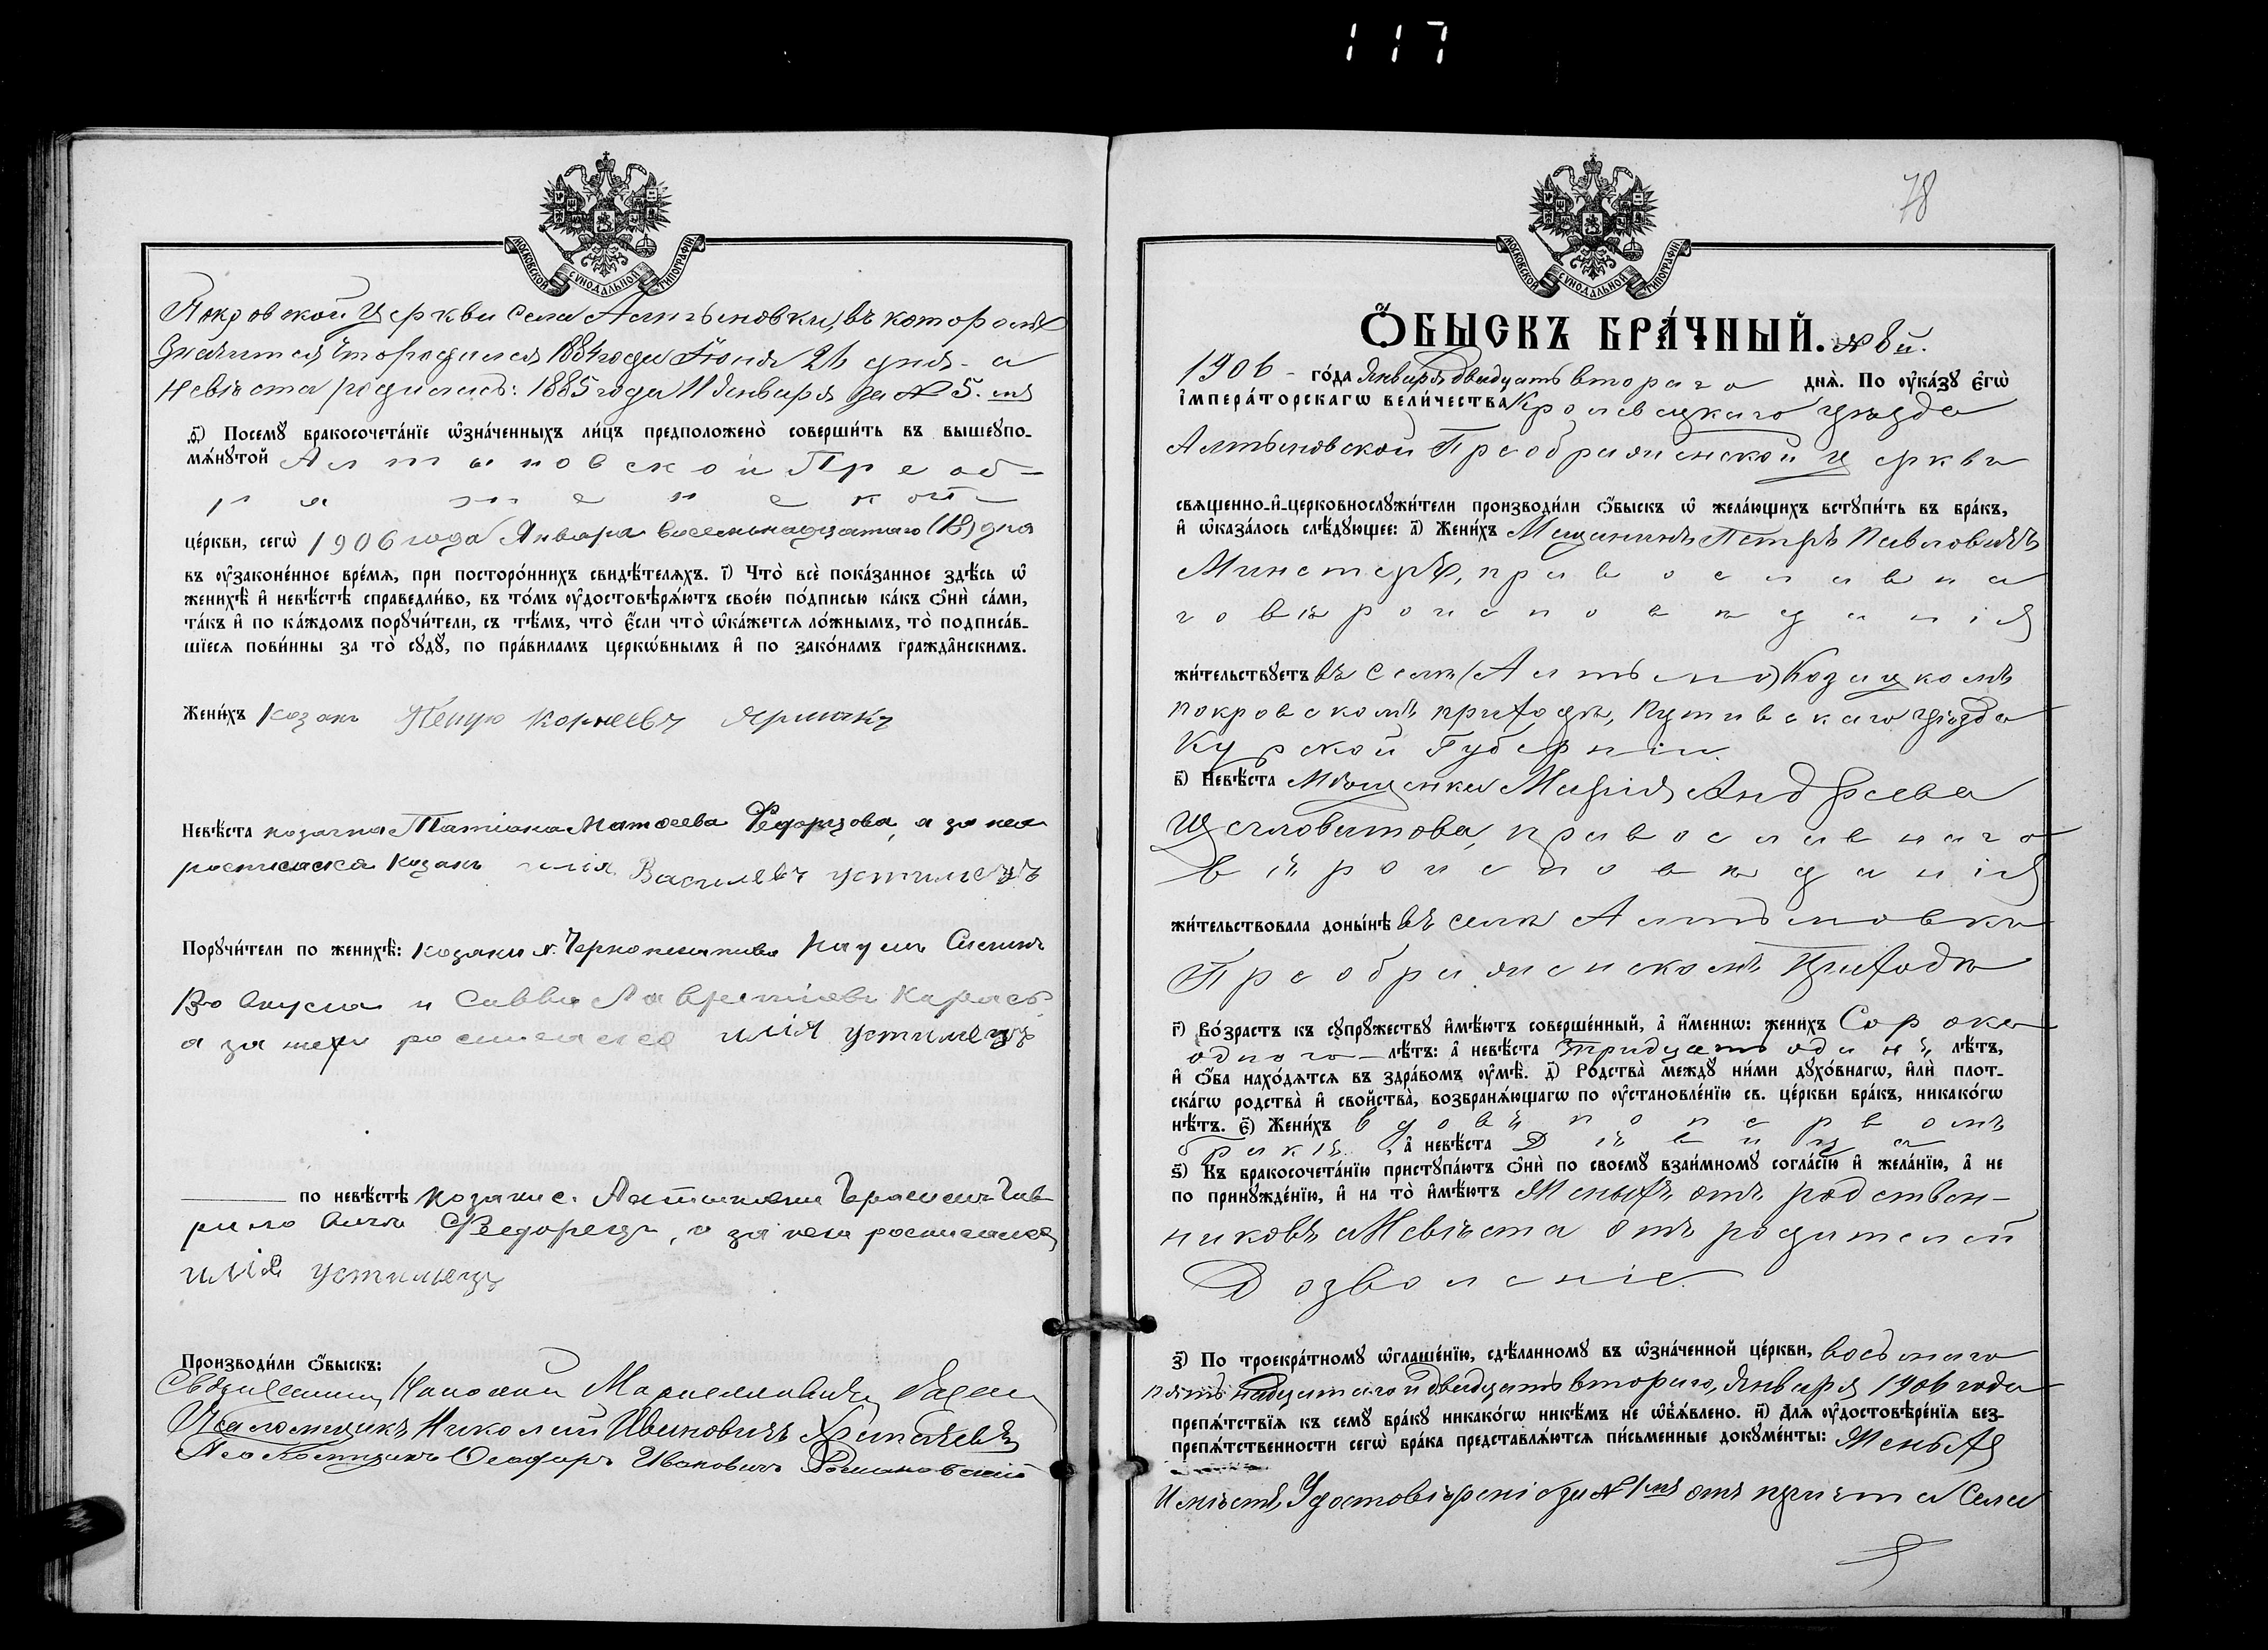 117
МОСКОВСКОЙ СУНОДАЛЬНОЙ ТИПОГРАФІИ
Покровской Церкви села Алтыновки, въ которомъ
значится, что родился 1884 года Іюня 26 дня - а
Невѣста родилась: 1885 года 11 Января за № 5. мъ
ѳ҃) Посемꙋ̀ бракосочета́нїе ѡ҆зна́ченныхъ ли́цъ предположено̀ соверши́ть въ вышеꙋпо-
мѧ́нꙋтой Алтыновской Преоб-
раженской
це́ркви, сегѡ̀ 1906 года Января восемнадцатаго (18) дня
въ ᲂу҆законе́нное вре́мѧ, при посторо́ннихъ свидѣ́телѧхъ. і҃) Что̀ всѐ пока́занное здѣ́сь ѡ҆
женихѣ̀ и҆ невѣ́стѣ справедли́во, въ то́мъ ᲂу҆достовѣрѧ́ютъ свое́ю по́дписью ка́къ ѻ҆нѝ са́ми,
та́къ и҆ по ка́ждомъ порꙋчи́тели, съ тѣ́мъ, что̀ є҆́сли что̀ ѡ҆ка́жетсѧ ло́жнымъ, то̀ подписа́в-
шїесѧ пови́нны за то̀ сꙋдꙋ̀, по пра́виламъ церкѡ́внымъ и҆ по зако́намъ гражда̑нскимъ.
Жени́хъ козакъ Петро Корнеевъ Ярмакъ
Невѣ́ста козачка Татіана Матѳеева Федорцова, а за нея
росписался козакъ илія Василевъ устимецъ
Порꙋчи́тели по женихѣ̀: козаки Наумъ
и Савва Лаврентіевъ Карась
а за техъ росписался илія устимецъ
по невѣ́стѣ козаки с. Алтыновки Герасимъ Гав-
риловичъ Федорецъ, а за них росписался
илія устимецъ
Производи́ли ѻ҆́быскъ:
Священникъ
Псаломщикъ Николай Ивановичъ
Псаломщикъ Ѳеодоръ Ивановичъ Романовскій
78
МОСКОВСКОЙ СУНОДАЛЬНОЙ ТИПОГРАФІИ
Ѻ҆́БЫСКЪ БРА́ЧНЫЙ. № 8й.
1906 - го́да Января двадцать втораго днѧ̀. По ᲂу҆ка́зꙋ є҆гѡ̀
і҆мпера́торскагѡ вели́чества Кролевецкаго уѣзда
Алтыновской Преображенской церкви
свѧщенно-и҆-церковнослꙋжи́тели производи́ли ѻ҆́быскъ ѡ҆ жела́ющихъ встꙋпи́ть въ бра́къ,
и҆ ѡ҆каза́лось слѣ́дꙋющее: а҃) Жени́хъ Мещанинъ Петръ Павловичъ
православна
го вѣроисповѣданія
жи́тельствꙋетъ въ селѣ Козацкомъ
покровскомъ приходѣ, Путивльскаго уѣзда
Курской Губерніи.
в҃) Невѣ́ста Мѣщанка Марія Андреева
Щегловитова, православнаго
вѣроисповѣданія
жи́тельствовала доны́нѣ въ селѣ Алтыновкѣ
Преображенскомъ Приходѣ
г҃) Во́зрастъ къ сꙋпрꙋжествꙋ и҆мѣ́ютъ соверше́нный, а҆ и҆́меннѡ: жени́хъ Сорока
одного - лѣ́тъ: а҆ невѣ́ста тридцать одинъ лѣ́тъ,
и҆ ѻ҆́ба нахо́дѧтсѧ въ здра́вомъ ᲂу҆мѣ̀. д҃) Родства̀ междꙋ ни́ми дꙋхо́внагѡ, и҆лѝ плот-
ска́гѡ родства̀ и҆ свойства̀, возбранѧ́ющагѡ по ᲂу҆становле́нїю св. це́ркви бра́къ, никако́гѡ
нѣ́тъ. є҃) Жени́хъ вдовъ по первомъ
бракѣ, а҆ невѣ́ста Дѣвица
ѕ҃) Къ бракосочета́нїю пристꙋпа́ютъ ѻ҆нѝ по своемꙋ̀ взаи́мномꙋ согла́сїю и҆ жела́нїю, а҆ не
по принꙋжде́нїю, и҆ на то̀ и҆мѣ́ютъ Женихъ отъ родствен-
никовъ а Невѣста отъ родителей
Дозволеніе
з҃) По троекра́тномꙋ ѡ҆глаше́нїю, сдѣ́ланномꙋ въ ѡ҆зна́ченной це́ркви, восьмаго
пятнадцатаго и двадцать втораго, Января 1906 года
препѧ́тствїѧ къ семꙋ̀ бра́кꙋ никако́гѡ никѣ́мъ не ѡ҆бъѧ́влено. и҃) Длѧ̀ ᲂу҆достовѣре́нїѧ без-
препѧ́тственности сегѡ̀ бра́ка представлѧ́ютсѧ пи́сьменные докꙋме́нты: Женихъ
Имѣетъ Удостовѣреніе за № 1мъ отъ причта Села